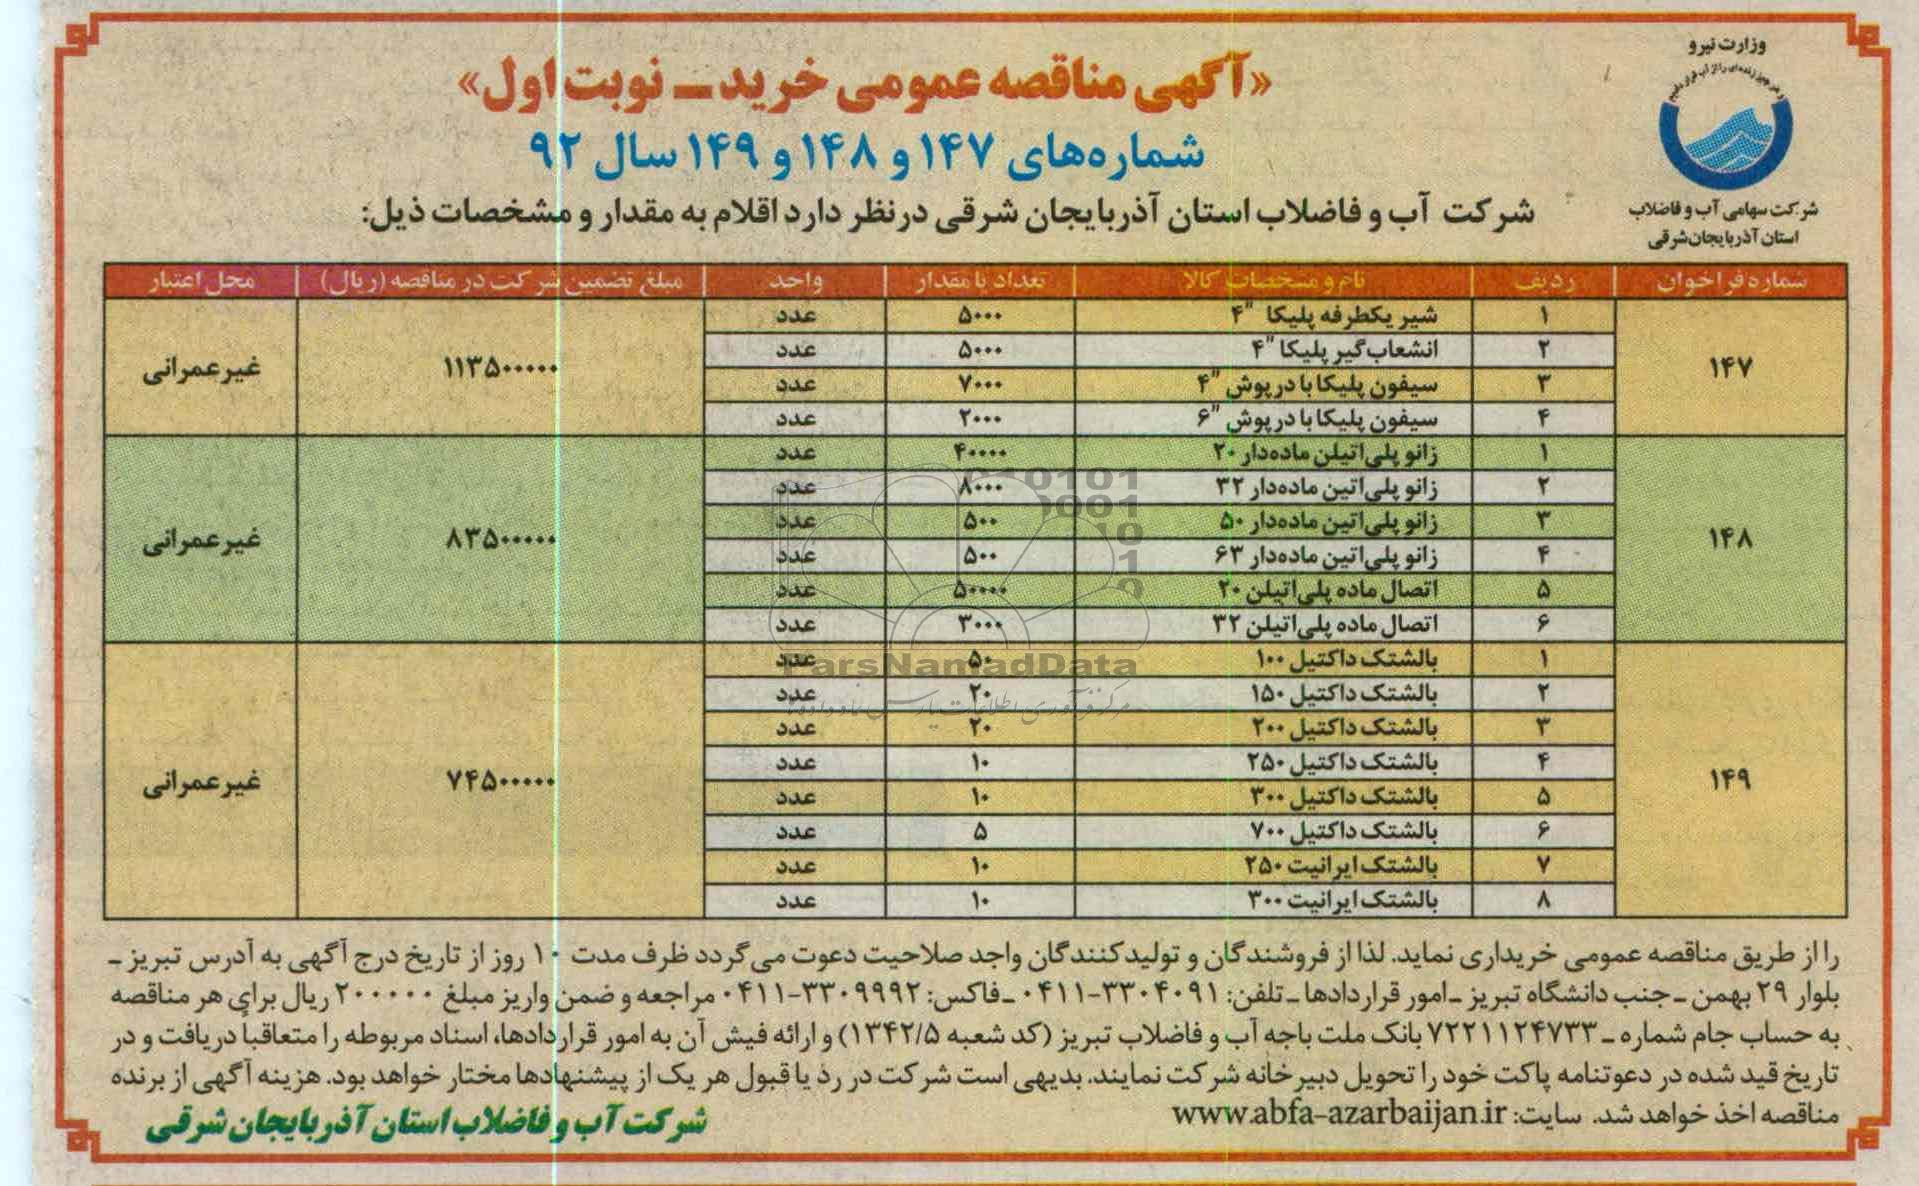 وزارت نیرو
شرکت سهامی آب و فاضلاب
استان آذربایجان‌شرقی
«آگهی مناقصه عمومی خرید ـ نوبت اول»
شماره‌های ۱۴۷ و ۱۴۸ و ۱۴۹ سال ۹۲
شرکت آب و فاضلاب استان آذربایجان شرقی درنظر دارد اقلام به مقدار و مشخصات ذیل:
شماره فراخوان | ردیف | نام و مشخصات کالا | تعداد یا مقدار | واحد | مبلغ تضمین شرکت در مناقصه (ریال) | محل اعتبار
۱۴۷ | ۱ | شیر یکطرفه پلیکا "۴ | ۵۰۰۰ | عدد | ۱۱۳۵۰۰۰۰۰۰ | غیرعمرانی
۲ | انشعاب‌گیر پلیکا "۴ | ۵۰۰۰ | عدد
۳ | سیفون پلیکا با درپوش "۴ | ۷۰۰۰ | عدد
۴ | سیفون پلیکا با درپوش "۶ | ۲۰۰۰ | عدد
۱۴۸ | ۱ | زانو پلی‌اتیلن ماده‌دار ۲۰ | ۴۰۰۰۰ | عدد | ۸۳۵۰۰۰۰۰ | غیرعمرانی
۲ | زانو پلی‌اتین ماده‌دار ۳۲ | ۸۰۰۰ | عدد
۳ | زانو پلی‌اتین ماده‌دار ۵۰ | ۵۰۰ | عدد
۴ | زانو پلی‌اتین ماده‌دار ۶۳ | ۵۰۰ | عدد
۵ | اتصال ماده پلی‌اتیلن ۲۰ | ۵۰۰۰۰ | عدد
۶ | اتصال ماده پلی‌اتیلن ۳۲ | ۳۰۰۰ | عدد
۱۴۹ | ۱ | بالشتک داکتیل ۱۰۰ | ۵۰ | عدد | ۷۴۵۰۰۰۰۰ | غیرعمرانی
۲ | بالشتک داکتیل ۱۵۰ | ۲۰ | عدد
۳ | بالشتک داکتیل ۲۰۰ | ۲۰ | عدد
۴ | بالشتک داکتیل ۲۵۰ | ۱۰ | عدد
۵ | بالشتک داکتیل ۳۰۰ | ۱۰ | عدد
۶ | بالشتک داکتیل ۷۰۰ | ۵ | عدد
۷ | بالشتک ایرانیت ۲۵۰ | ۱۰ | عدد
۸ | بالشتک ایرانیت ۳۰۰ | ۱۰ | عدد
ParsNamadData
مرکز فرآوری اطلاعات پارس نماد داده‌ها
را از طریق مناقصه عمومی خریداری نماید. لذا از فروشندگان و تولیدکنندگان واجد صلاحیت دعوت می‌گردد ظرف مدت ۱۰ روز از تاریخ درج آگهی به آدرس تبریز ـ
بلوار ۲۹ بهمن ـ جنب دانشگاه تبریز ـ امور قراردادها ـ تلفن: ۳۳۰۴۰۹۱-۰۴۱۱ ـ فاکس: ۳۳۰۹۹۹۲-۰۴۱۱ مراجعه و ضمن واریز مبلغ ۲۰۰۰۰۰ ریال برای هر مناقصه
به حساب جام شماره ـ ۷۲۲۱۱۲۴۷۳۳ بانک ملت باجه آب و فاضلاب تبریز (کد شعبه ۱۳۴۲/۵) و ارائه فیش آن به امور قراردادها، اسناد مربوطه را متعاقباً دریافت و در
تاریخ قید شده در دعوتنامه پاکت خود را تحویل دبیرخانه شرکت نمایند. بدیهی است شرکت در رد یا قبول هر یک از پیشنهادها مختار خواهد بود. هزینه آگهی از برنده
مناقصه اخذ خواهد شد. سایت: www.abfa-azarbaijan.ir
شرکت آب و فاضلاب استان آذربایجان شرقی